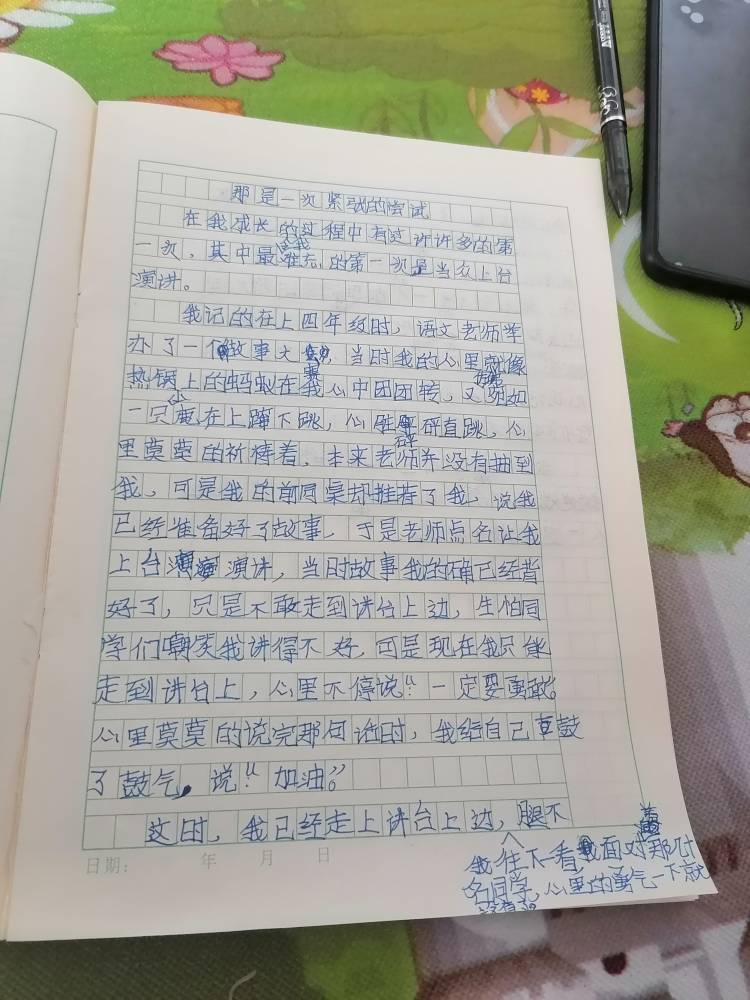 那是一次紧张的尝试
在我成长的过程中有过许许多多的第
一次,其中最让我难忘的第一次是当众上台
演讲。
我记的在上四年级时,语文老师举
办了一个故事大赛,当时我的心里就像
热锅上的蚂蚁在我心中团团转,又仿佛如
一只小鹿在上蹿下跳,心砰砰直跳,心
里莫莫的祈祷着,本来老师并没有抽到
我,可是我的前同桌却推荐了我,说我
已经准备好了故事,于是老师点名让我
上台演讲,当时故事我的确已经背
好了,只是不敢走到讲台上边,生怕同
学们嘲笑我讲得不好,可是现在我只能
走到讲台上,心里不停说:“一定要勇敢。”
心里莫莫的说完那句话时,我给自己鼓
了鼓气,说:“加油。”
这时,我已经走上讲台上边,腿不
日期: 年 月 日
我往下一看,面对那
名同学,心里的勇气一下就
没有